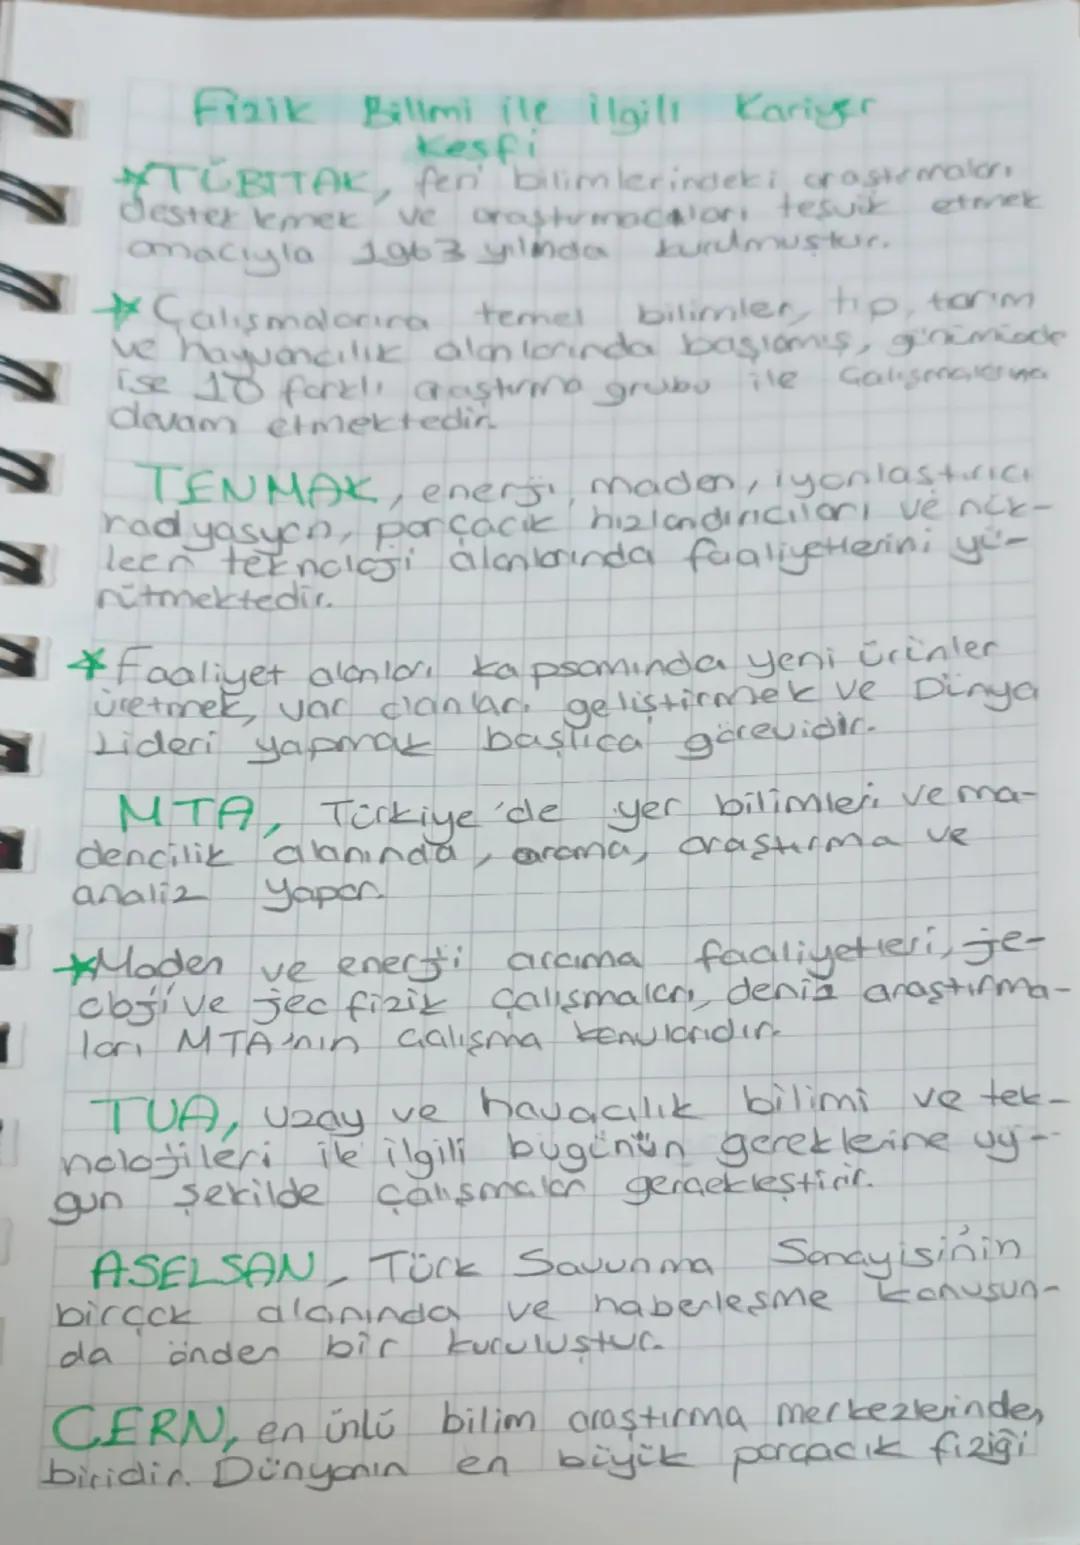 Fizik Bilimi ile ilgili Kariyer
Keşfi
*TÜBİTAK, fen bilimlerindeki araştırmaları
desteklemek ve araştırmacıları teşvik etmek
amacıyla 1963 yılında kurulmuştur.
*Çalışmalarına temel bilimler, tıp, tarım
ve hayvancılık alanlarında başlamış, günümüzde
ise 10 farklı araştırma grubu ile çalışmalarına
devam etmektedir.
TENMAK, enerji, maden, iyonlaştırıcı
radyasyon, parçacık hızlandırıcıları ve nük-
leer teknoloji alanlarında faaliyetlerini yü-
rütmektedir.
*Faaliyet alanları kapsamında yeni ürünler
üretmek, var olanları geliştirmek ve Dünya
Lideri yapmak başlıca görevidir.
MTA, Türkiye'de yer bilimleri ve ma-
dencilik alanında, arama, araştırma ve
analiz yapar.
*Maden ve enerji arama faaliyetleri, je-
oloji ve jeofizik çalışmaları, deniz araştırma-
ları MTA'nın çalışma konularıdır.
TUA, uzay ve havacılık bilimi ve tek-
nolojileri ile ilgili bugünün gereklerine uy-
gun şekilde çalışmalar gerçekleştirir.
ASELSAN, Türk Savunma Sanayisinin
birçok alanında ve haberleşme konusun-
da önder bir kuruluştur.
CERN, en ünlü bilim araştırma merkezlerinden
biridir. Dünyanın en büyük parçacık fiziği